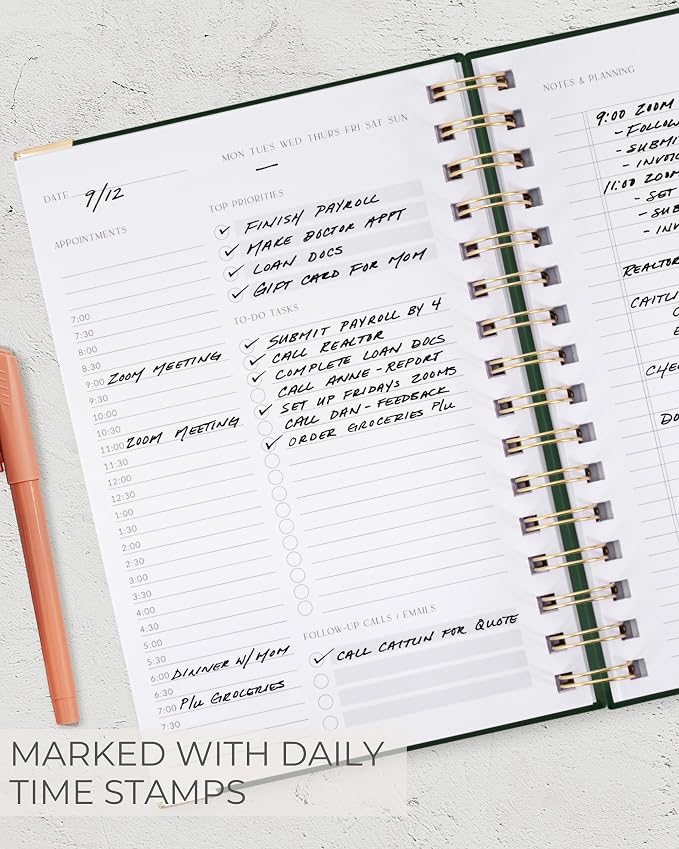 MON TUES WED THURS FRI SAT SUN
DATE 9/12
APPOINTMENTS
7:00
7:30
8:00
8:30
9:00 ZOOM MEETING
9:30
10:00
10:30
11:00 ZOOM MEETING
11:30
12:00
12:30
1:00
1:30
2:00
2:30
3:00
3:30
4:00
4:30
5:00
5:30
6:00 DINNER W/ MOM
6:30
7:00 P/U GROCERIES
7:30
TOP PRIORITIES
FINISH PAYROLL
MAKE DOCTOR APPT
LOAN DOCS
GIFT CARD FOR MOM
TO-DO TASKS
SUBMIT PAYROLL BY 4
CALL REALTOR
COMPLETE LOAN DOCS
CALL ANNE - REPORT
SET UP FRIDAYS ZOOMS
CALL DAN - FEEDBACK
ORDER GROCERIES P/U
FOLLOW-UP CALLS / EMAILS
CALL CAITLIN FOR QUOTE
NOTES & PLANNING
9:00 ZOOM
- FOLLOW
- SUBMIT
- INVOIC
11:00 ZOOM
- SET
- SUB
- INV
REALTOR
CAITL
CHE
DO
MARKED WITH DAILY
TIME STAMPS